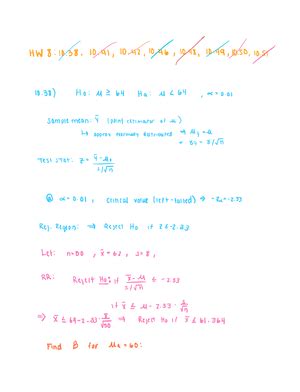 HW 8: 10.38, 10.41, 10.42, 10.46, 10.48, 10.49, 10.50, 10.51
10.38) H₀: μ ≥ 64 Hₐ: μ < 64 , α = 0.01
Sample mean: Ȳ (point estimator of μ)
↳ approx normally distributed ⇒ μȳ = μ
⇒ σȳ = s/√n
Test Stat: z = (Ȳ - μ₀)/(s/√n)
@ α = 0.01 , critical value (left-tailed) ⇒ -zα = -2.33
Rej. Region: ⇒ Reject H₀ if z ≤ -2.33
Let: n=50 , x̄ = 62 , s = 8,
RR: Reject H₀: if (x̄ - μ)/(s/√n) ≤ -2.33
if x̄ ≤ μ - 2.33 · s/√n
⇒ x̄ ≤ 64 - 2.33 · 8/√50 ⇒ Reject H₀ if x̄ ≤ 61.364
Find β for μₐ = 60: